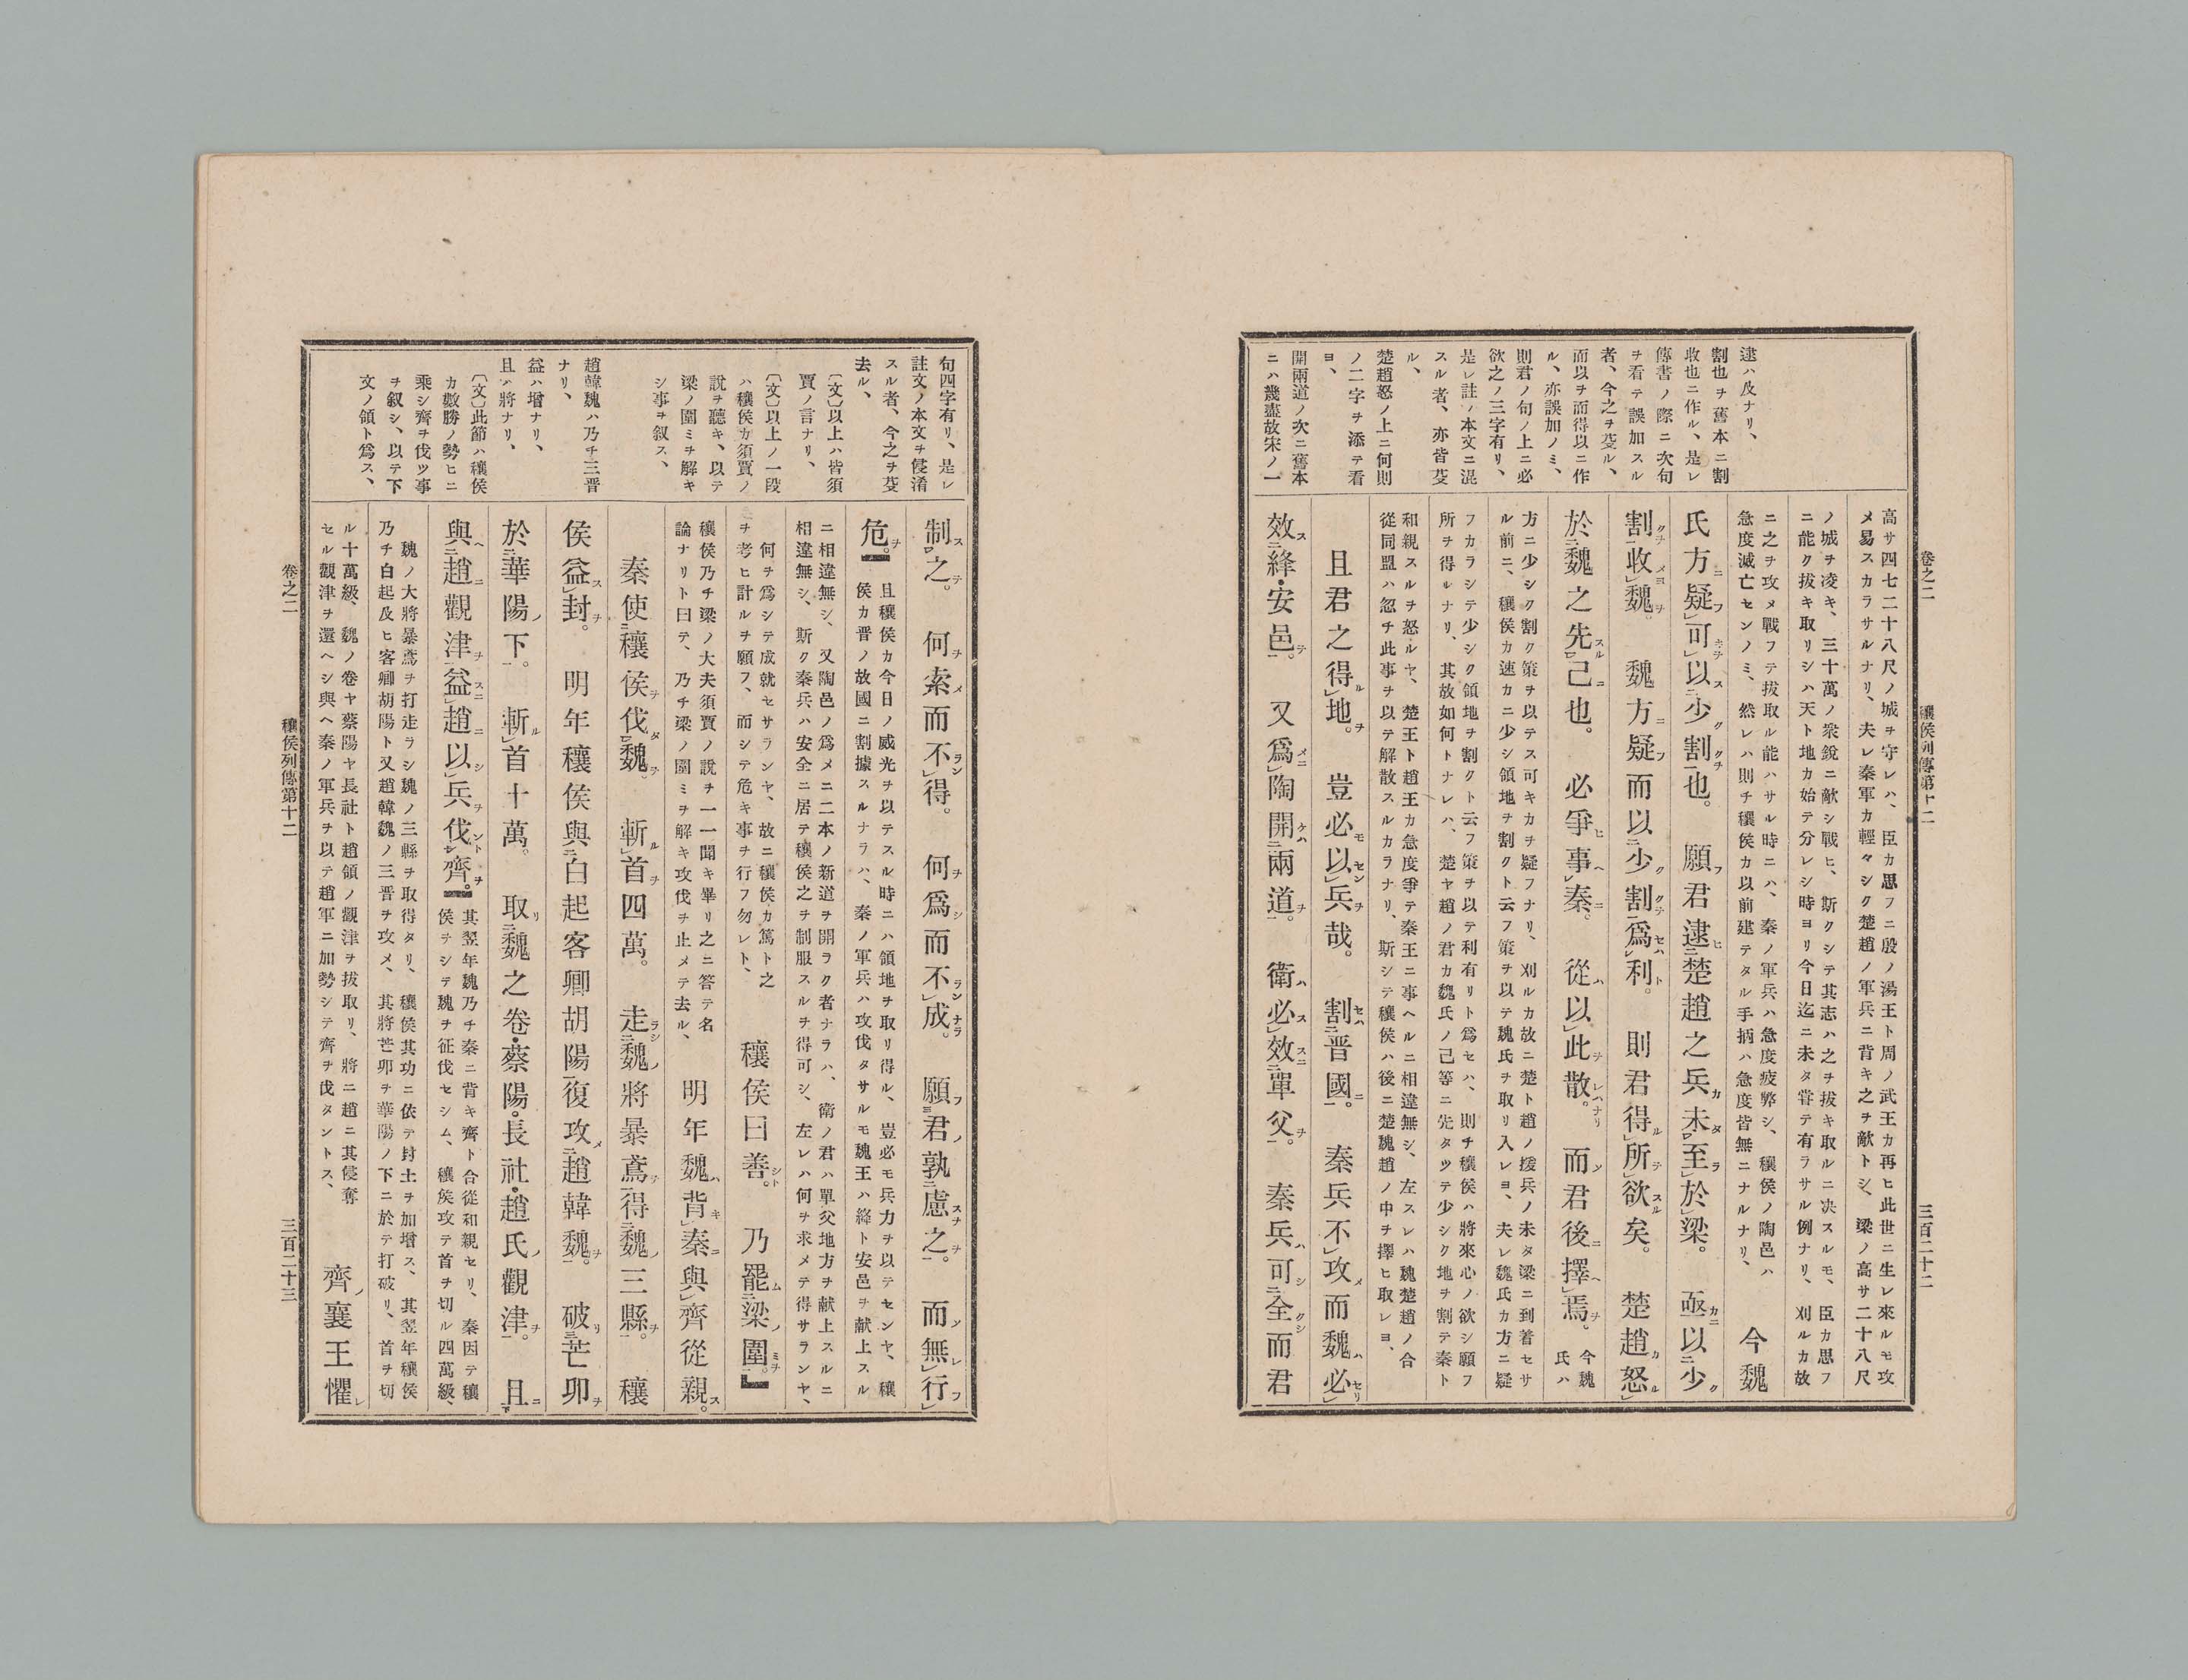 卷之二
穰侯列傳第十二
三百二十二
逮ハ及ナリ、
割也ヲ舊本ニ割
收也ニ作ル、是レ
傳書ノ際ニ次句
ヲ看テ誤加スル
者、今之ヲ芟ル、
而以ヲ而得以ニ作
ル、亦誤加ノミ、
則君ノ句ノ上ニ必
欲之ノ三字有リ、
是レ註ノ本文ニ混
スル者、亦皆芟
ル、
楚趙怒ノ上ニ何則
ノ二字ヲ添テ看
ヨ、
開兩道ノ次ニ舊本
ニハ幾盡故宋ノ一
高サ四七二十八尺ノ城ヲ守レハ、臣カ思フニ殷ノ湯王ト周ノ武王カ再ヒ此世ニ生レ來ルモ攻
メ易スカラサルナリ、夫レ秦軍カ輕々シク楚趙ノ軍兵ニ背キ之ヲ敵トシ、梁ノ高サ二十八尺
ノ城ヲ凌キ、三十萬ノ衆銳ニ敵シ戰ヒ、斯クシテ其志ハ之ヲ拔キ取ルニ決スルモ、臣カ思フ
ニ能ク拔キ取リシハ天ト地カ始テ分レシ時ヨリ今日迄ニ未タ甞テ有ラサル例ナリ、刈ルカ故
ニ之ヲ攻メ戰フテ拔取ル能ハサル時ニハ、秦ノ軍兵ハ急度疲弊シ、穰侯ノ陶邑ハ
急度滅亡センノミ、然レハ則チ穰侯カ以前建テタル手柄ハ急度皆無ニナルナリ、
今魏
氏方疑可以少割也。願君逮楚趙之兵未至於梁。亟以少
割收魏。魏方疑而以少割爲利。則君得所欲矣。楚趙怒
於魏之先己也。必爭事秦。從以此散。而君後擇焉。
今魏
氏ハ
方ニ少シク割ク策ヲ以テス可キカヲ疑フナリ、刈ルカ故ニ楚ト趙ノ援兵ノ未タ梁ニ到着セサ
ル前ニ、穰侯カ速カニ少シ領地ヲ割クト云フ策ヲ以テ魏氏ヲ取リ入レヨ、夫レ魏氏カ方ニ疑
フカラシテ少シク領地ヲ割クト云フ策ヲ以テ利有リト爲セハ、則チ穰侯ハ將來心ノ欲シ願フ
所ヲ得ルナリ、其故如何トナレハ、楚ヤ趙ノ君カ魏氏ノ己等ニ先タツテ少シク地ヲ割テ秦ト
和親スルヲ怒ルヤ、楚王ト趙王カ急度爭テ秦王ニ事ヘルニ相違無シ、左スレハ魏楚趙ノ合
從同盟ハ忽チ此事ヲ以テ解散スルカラナリ、斯シテ穰侯ハ後ニ楚魏趙ノ中ヲ擇ヒ取レヨ、
且君之得地。豈必以兵哉。割晋國。秦兵不攻而魏必
效絳・安邑。又爲陶開兩道。衛必效單父。秦兵可全而君
句四字有リ、是レ
註文ノ本文ヲ侵淆
スル者、今之ヲ芟
去ル、
〔文〕以上ハ皆須
賈ノ言ナリ、
〔文〕以上ノ一段
ハ穰侯カ須賈ノ
說ヲ聽キ、以テ
梁ノ圍ミヲ解キ
シ事ヲ叙ス、
趙韓魏ハ乃チ三晋
ナリ、
益ハ增ナリ、
且ハ將ナリ、
〔文〕此節ハ穰侯
カ數勝ノ勢ヒニ
乘シ齊ヲ伐ツ事
ヲ叙シ、以テ下
文ノ領ト爲ス、
制之。何索而不得。何爲而不成。願君孰慮之。而無行
危。
且穰侯カ今日ノ威光ヲ以テスル時ニハ領地ヲ取リ得ル、豈必モ兵力ヲ以テセンヤ、穰
侯カ晋ノ故國ニ割據スルナラハ、秦ノ軍兵ハ攻伐タサルモ魏王ハ絳ト安邑ヲ献上スル
ニ相違無シ、又陶邑ノ爲メニ二本ノ新道ヲ開ラク者ナラハ、衛ノ君ハ單父地方ヲ献上スルニ
相違無シ、斯ク秦兵ハ安全ニ居テ穰侯之ヲ制服スルヲ得可シ、左レハ何ヲ求メテ得サランヤ、
何ヲ爲シテ成就セサランヤ、故ニ穰侯カ篤ト之
ヲ考ヒ計ルヲ願フ、而シテ危キ事ヲ行フ勿レト、
穰侯曰善。乃罷梁圍。
穰侯乃チ梁ノ大夫須賈ノ說ヲ一一聞キ畢リ之ニ答テ名
論ナリト曰テ、乃チ梁ノ圍ミヲ解キ攻伐ヲ止メテ去ル、
明年魏背秦與齊從親。
秦使穰侯伐魏。斬首四萬。走魏將暴鳶。得魏三縣。穰
侯益封。明年穰侯與白起客卿胡陽復攻趙韓魏。破芒卯
於華陽下。斬首十萬。取魏之卷・蔡陽。長社・趙氏觀津。且
與趙觀津益趙以兵伐齊。
其翌年魏乃チ秦ニ背キ齊ト合從和親セリ、秦因テ穰
侯ヲシテ魏ヲ征伐セシム、穰侯攻テ首ヲ切ル四萬級、
魏ノ大將暴鳶ヲ打走ラシ魏ノ三縣ヲ取得タリ、穰侯其功ニ依テ封土ヲ加增ス、其翌年穰侯
乃チ白起及ヒ客卿胡陽ト又趙韓魏ノ三晋ヲ攻メ、其將芒卯ヲ華陽ノ下ニ於テ打破リ、首ヲ切
ル十萬級、魏ノ卷ヤ蔡陽ヤ長社ト趙領ノ觀津ヲ拔取リ、將ニ趙ニ其侵奪
セル觀津ヲ還ヘシ與ヘ秦ノ軍兵ヲ以テ趙軍ニ加勢シテ齊ヲ伐タントス、
齊襄王懼
卷之二
穰侯列傳第十二
三百二十三